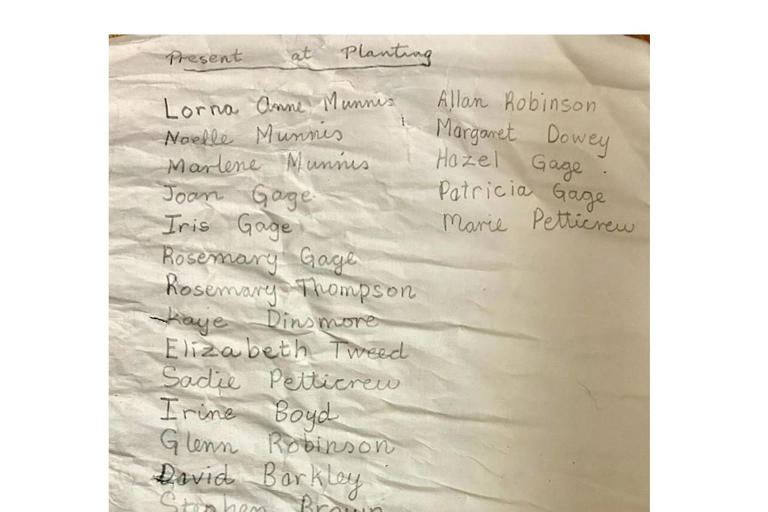 Present at Planting
Lorna Anne Munnis
Noelle Munnis
Marlene Munnis
Joan Gage
Iris Gage
Rosemary Gage
Rosemary Thompson
Kaye Dinsmore
Elizabeth Tweed
Sadie Petticrew
Irine Boyd
Glenn Robinson
David Barkley
Stephen Brown
Allan Robinson
Margaret Dowey
Hazel Gage
Patricia Gage
Marie Petticrew